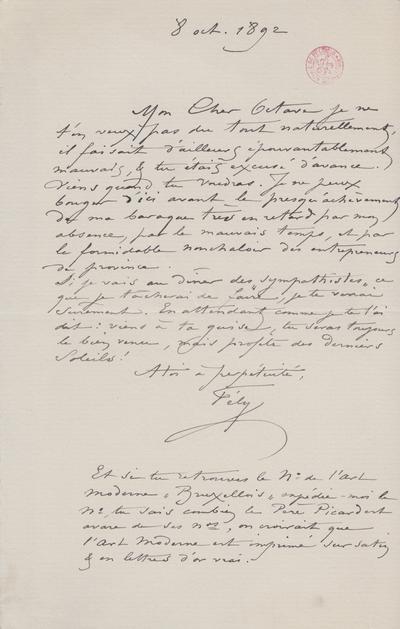 8 oct. 1892
Mon Cher Octave je ne
t'en veux pas du tout naturellement,
il faisait d'ailleurs épouvantablement
mauvais, & tu étais excusé d'avance.
Viens quand tu voudras. Je ne peux
bouger d'ici avant le presqu'achèvement
de ma baraque très en retard par mon
absence, par le mauvais temps, et par
le formidable nonchaloir des entrepreneurs
de province.
Si je vais au dîner des "Sympathistes", ce
que je tâcherai de faire, je te verrai
surement. En attendant comme je te l'ai
dit : viens à ta guise, tu seras toujours
le bien venu, mais profite des derniers
Soleils!
A toi à perpetuité,
Fély
Et si tu retrouves le No. de l'Art
Moderne "Bruxellois" expédie-moi le
No, tu sais combien le Père Picard est
avare de ses nos, on croirait que
l'Art Moderne est imprimé sur satin
& en lettres d'or vrai.